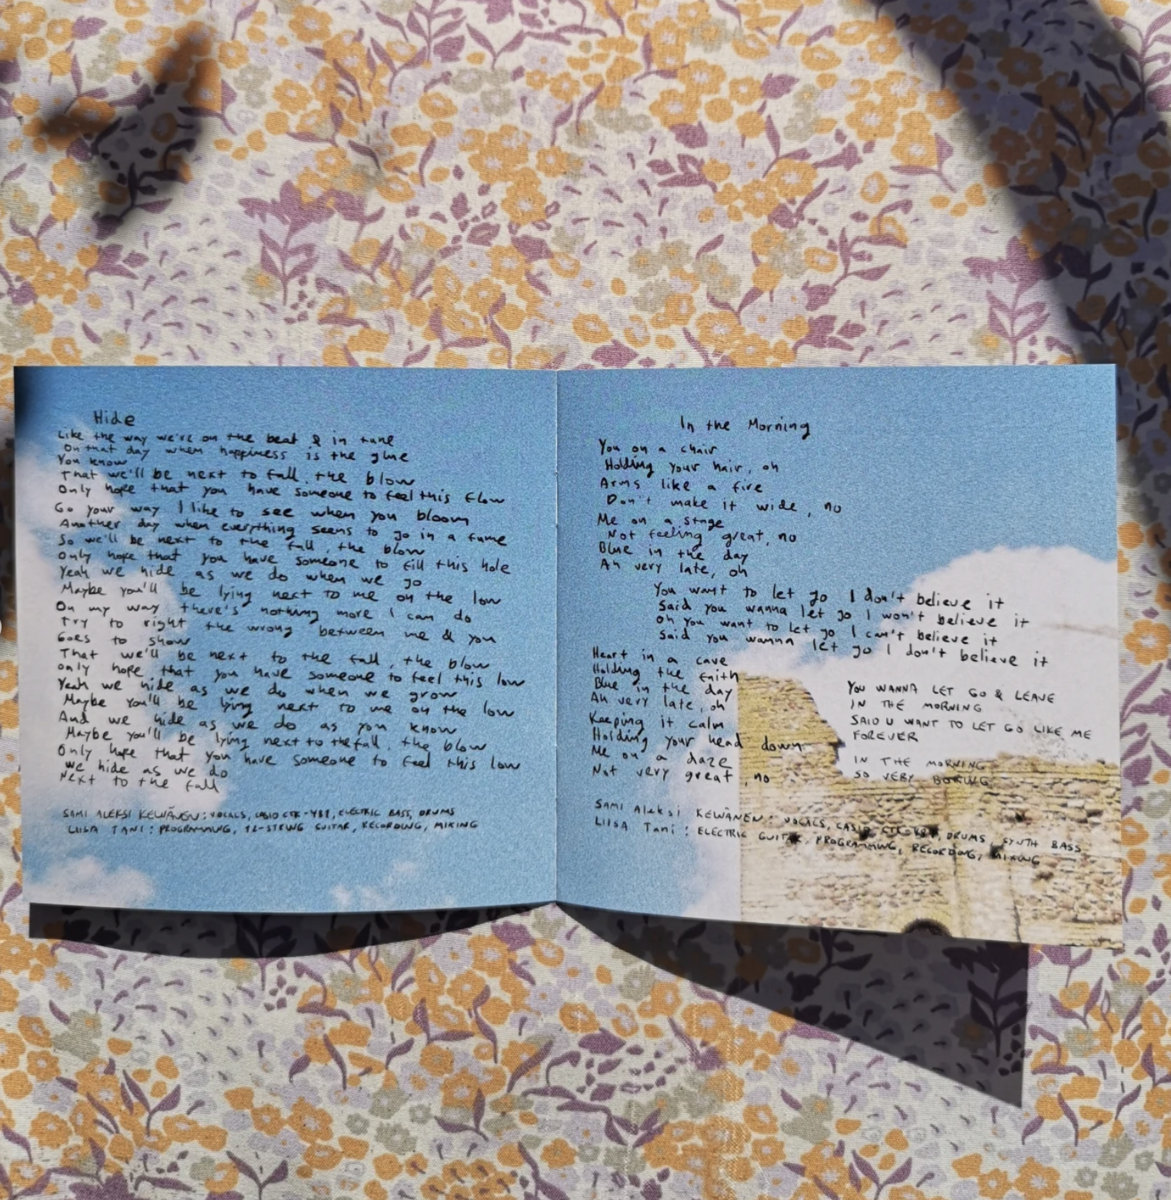 Hide
Like the way we're on the beat & in tune
On that day when happiness is the glue
You know
That we'll be next to fall, the blow
Only hope that you have someone to feel this flow
Go your way I like to see when you bloom
Another day when everything seems to go in a fume
So we'll be next to the fall, the blow
Only hope that you have someone to fill this hole
Yeah we hide as we do when we go
Maybe you'll be lying next to me on the low
On my way there's nothing more I can do
Try to right the wrong between me & you
Goes to show
That we'll be next to the fall, the blow
Only hope that you have someone to feel this low
Yeah we hide as we do when we grow
Maybe you'll be lying next to me on the low
And we hide as we do as you know
Maybe you'll be lying next to the fall, the blow
Only hope that you have someone to feel this low
We hide as we do
Next to the fall
SAMI ALEKSI KEWÄNEN: VOCALS, CASIO ELECTRIC BASS, DRUMS
LIISA TANI: PROGRAMMING, 12-STRING GUITAR, RECORDING, MIXING
In the Morning
You on a chair
Holding your hair, oh
Arms like a fire
Don't make it wide, no
Me on a stage
Not feeling great, no
Blue in the day
Ah very late, oh
You want to let go I don't believe it
Said you wanna let go I won't believe it
Oh you want to let go I can't believe it
Said you wanna let go I don't believe it
Heart in a cave
Holding the faith
Blue in the day
Ah very late, oh
Keeping it calm
Holding your head down
Me on a daze
Not very great, no
YOU WANNA LET GO & LEAVE
IN THE MORNING
SAID U WANT TO LET GO LIKE ME
FOREVER
IN THE MORNING
SO VERY BORING
SAMI Aleksi KEWÄNEN: VOCALS, CASIO DRUMS, SYNTH BASS
LIISA Tani: ELECTRIC GUITAR, PROGRAMMING, RECORDING, MIXING